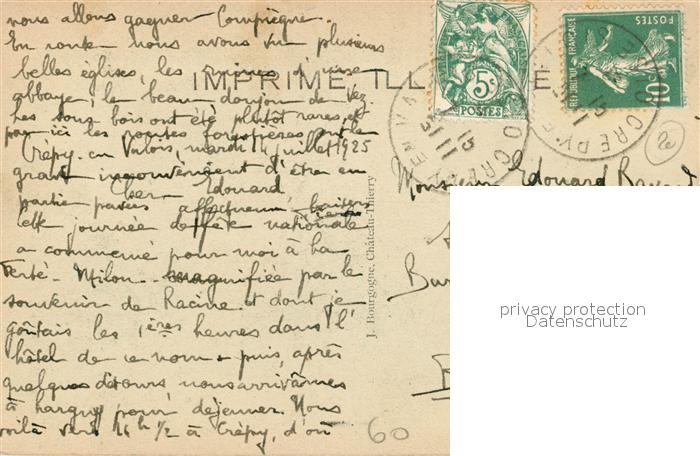 nous allons gagner Compiègne.
En route nous avons vu plusieurs
belles églises, les ruines d'une
abbaye, le beau donjon de Vez
Les sous bois ont été plutôt rares, et
par ici les routes forestières ont le
Crépy-en Valois, mardi 14 juillet 1925
grave inconvénient d'être en
Cher Edouard
partie pavées affectueux baisers
Cette journée de fête nationale
a commencé pour moi à La
Ferté-Milon magnifiée par le
souvenir de Racine et dont je
goûtais les 1ères heures dans l'
hôtel de ce nom - puis, après
quelques détours nous arrivâmes
à hargny pour déjeuner. Nous
voilà vers 16h 1/2 à Crépy, d'où
IMPRIMÉ ILL
J. Bourgogne, Château-Thierry
5c
POSTES
POSTES
REPUBLIQUE FRANÇAISE
10c
Monsieur Edouard
privacy protection
Datenschutz
60